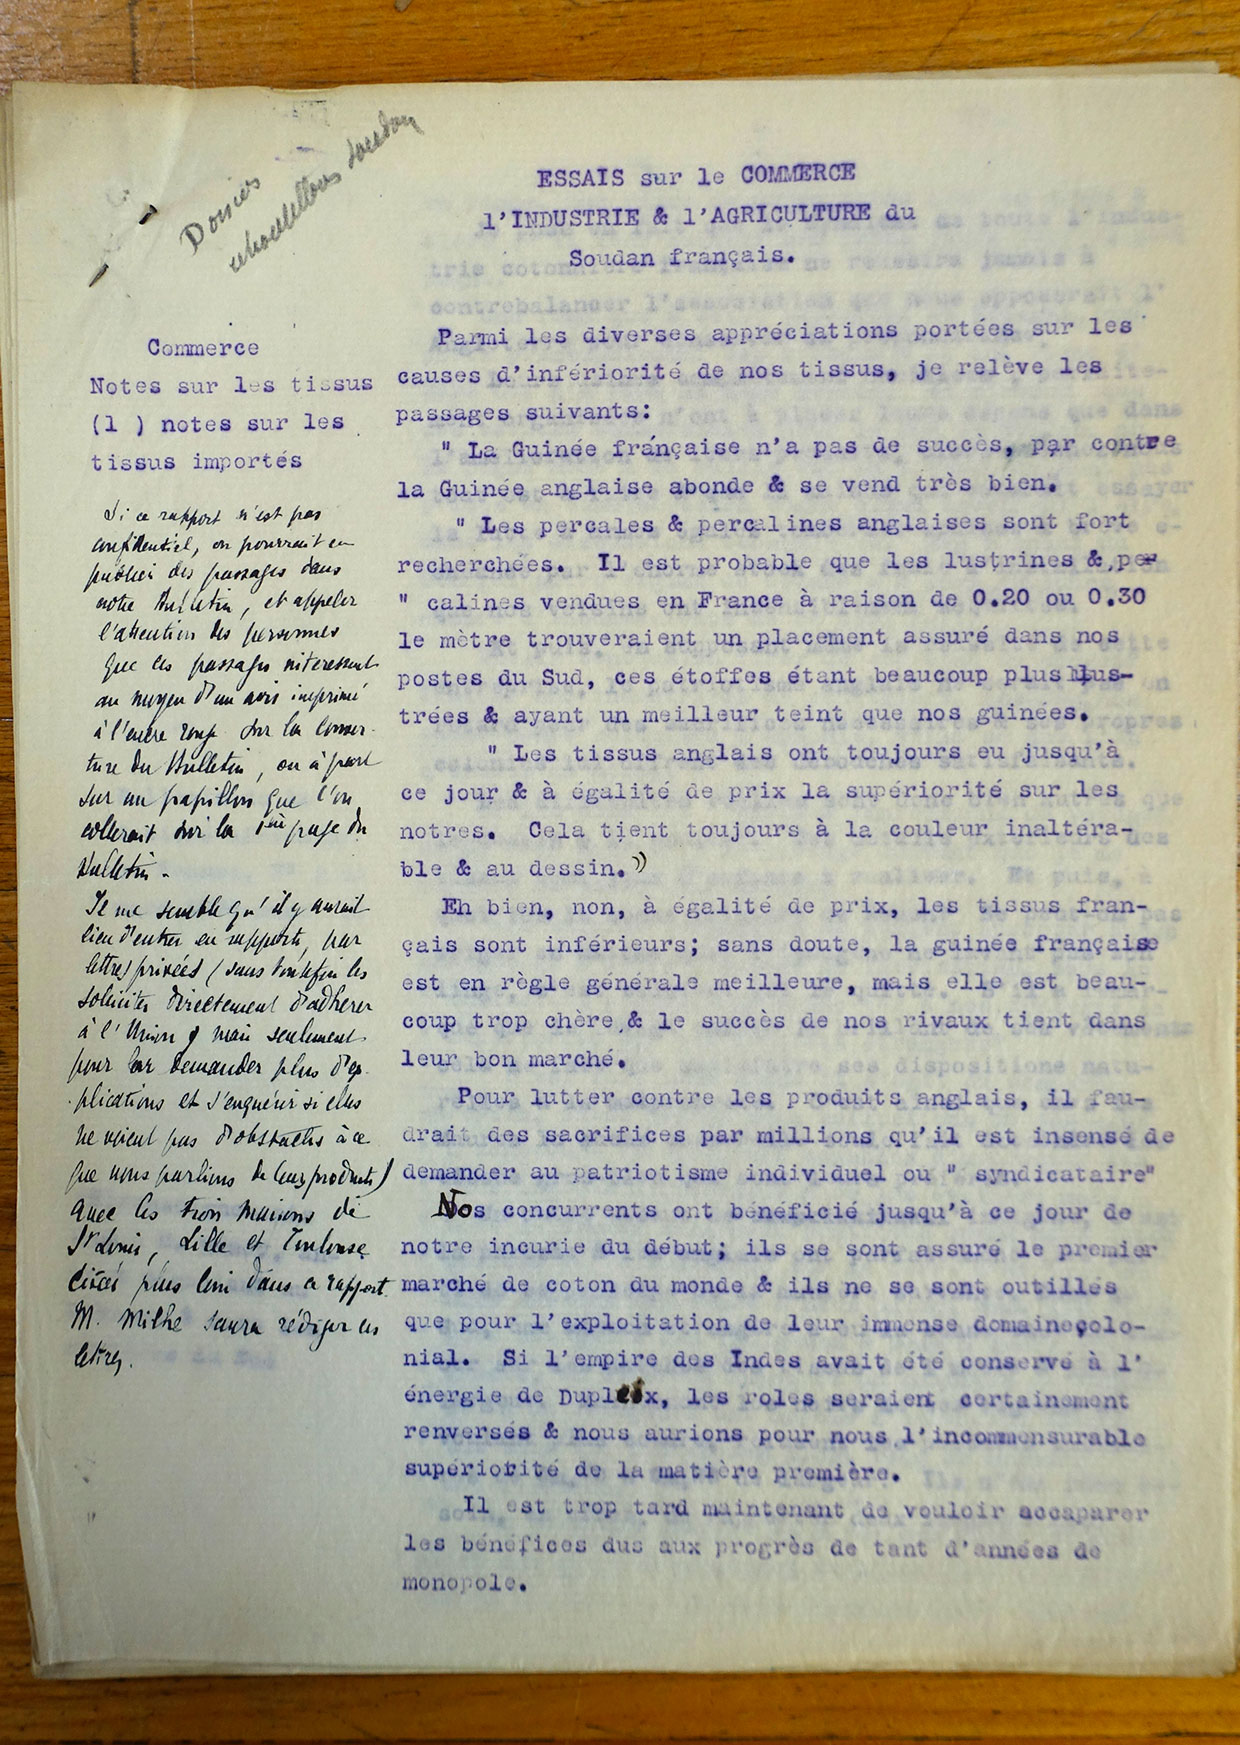 Dossier
Soudan
ESSAIS sur le COMMERCE
l'INDUSTRIE & l'AGRICULTURE du
Soudan français.
Commerce
Notes sur les tissus
(1 ) notes sur les
tissus importés
Si ce rapport n'est pas
confidentiel, on pourrait en
publier des passages dans
notre Bulletin, et appeler
l'attention des personnes
que ces passages intéressent
au moyen d'un avis imprimé
à l'encre rouge sur la couver-
ture du Bulletin, ou à part
sur un papillon que l'on
collerait sur la 1ère page du
Bulletin.
Il me semble qu'il y aurait
lieu d'entrer en rapports, par
lettres privées (sans toutefois les
solliciter directement d'adhérer
à l'Union & mais seulement
pour leur demander plus d'ex-
plications et s'enquérir si elles
ne voient pas d'obstacles à ce
que nous parlions de leurs produits)
avec les trois maisons de
St Louis, Lille et Toulouse
citées plus loin dans ce rapport
M. Milhe saura rédiger ces
lettres.
Parmi les diverses appréciations portées sur les
causes d'infériorité de nos tissus, je relève les
passages suivants:
" La Guinée française n'a pas de succès, par contre
la Guinée anglaise abonde & se vend très bien.
" Les percales & percalines anglaises sont fort
recherchées. Il est probable que les lustrines & per
" calines vendues en France à raison de 0.20 ou 0.30
le mètre trouveraient un placement assuré dans nos
postes du Sud, ces étoffes étant beaucoup plus lus-
trées & ayant un meilleur teint que nos guinées.
" Les tissus anglais ont toujours eu jusqu'à
ce jour & à égalité de prix la supériorité sur les
notres. Cela tient toujours à la couleur inaltéra-
ble & au dessin.))
Eh bien, non, à égalité de prix, les tissus fran-
çais sont inférieurs; sans doute, la guinée française
est en règle générale meilleure, mais elle est beau-
coup trop chère & le succès de nos rivaux tient dans
leur bon marché.
Pour lutter contre les produits anglais, il fau-
drait des sacrifices par millions qu'il est insensé de
demander au patriotisme individuel ou " syndicataire"
Nos concurrents ont bénéficié jusqu'à ce jour de
notre incurie du début; ils se sont assuré le premier
marché de coton du monde & ils ne se sont outillés
que pour l'exploitation de leur immense domaine colo-
nial. Si l'empire des Indes avait été conservé à l'
énergie de Dupleix, les roles seraient certainement
renversés & nous aurions pour nous l'incommensurable
supériorité de la matière première.
Il est trop tard maintenant de vouloir accaparer
les bénéfices dus aux progrès de tant d'années de
monopole.